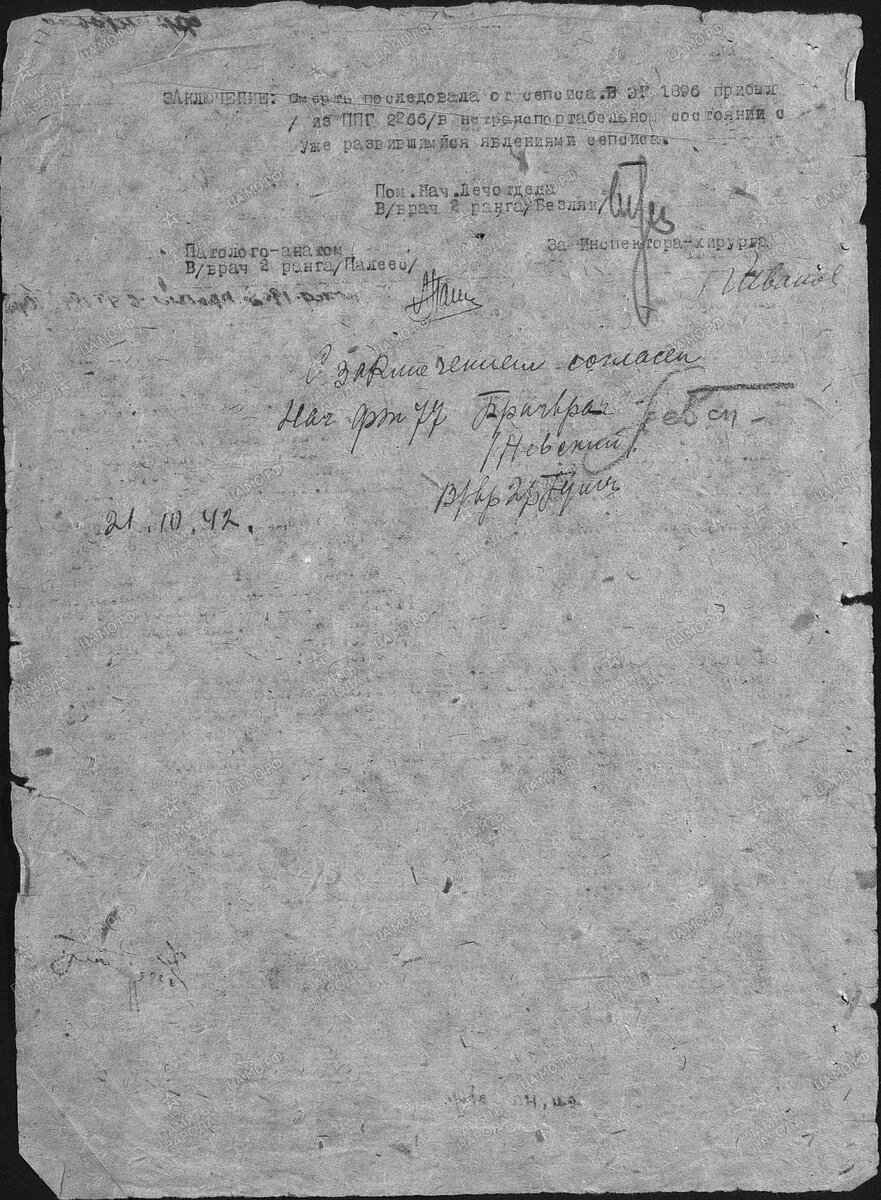 ЗАКЛЮЧЕНИЕ: Смерть последовала от сепсиса. В ЭГ 1896 прибыл
/ из ППГ 2266/в нетранспортабельном состоянии с
уже развившимйся явлениями сепсиса.
Пом.Нач.Лечотдела
В/врач 2 ранга/Безляк/
Патолого-анатом
В/врач 2 ранга/Палеес/
За Инспектора-хирурга
Иванов
С заключением согласен
Нач ФЭП 77 Бригврач
/Невский/
21.10.42.